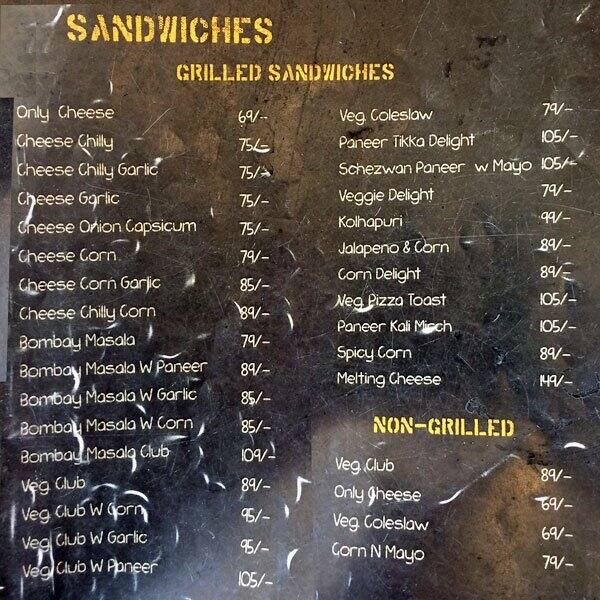 SANDWICHES
GRILLED SANDWICHES
Only Cheese 69/-
Cheese Chilly 75/-
Cheese Chilly Garlic 75/-
Cheese Garlic 75/-
Cheese Onion Capsicum 75/-
Cheese Corn 79/-
Cheese Corn Garlic 85/-
Cheese Chilly Corn 89/-
Bombay Masala 79/-
Bombay Masala W Paneer 89/-
Bombay Masala W Garlic 85/-
Bombay Masala W Corn 85/-
Bombay Masala Club 109/-
Veg Club 89/-
Veg Club W Corn 95/-
Veg Club W Garlic 95/-
Veg Club W Paneer 105/-
Veg. Coleslaw 79/-
Paneer Tikka Delight 105/-
Schezwan Paneer w Mayo 105/-
Veggie Delight 79/-
Kolhapuri 99/-
Jalapeno & Corn 89/-
Corn Delight 89/-
Veg. Pizza Toast 105/-
Paneer Kali Mirch 105/-
Spicy Corn 89/-
Melting Cheese 149/-
NON-GRILLED
Veg. Club 89/-
Only Cheese 69/-
Veg. Coleslaw 69/-
Corn N Mayo 79/-